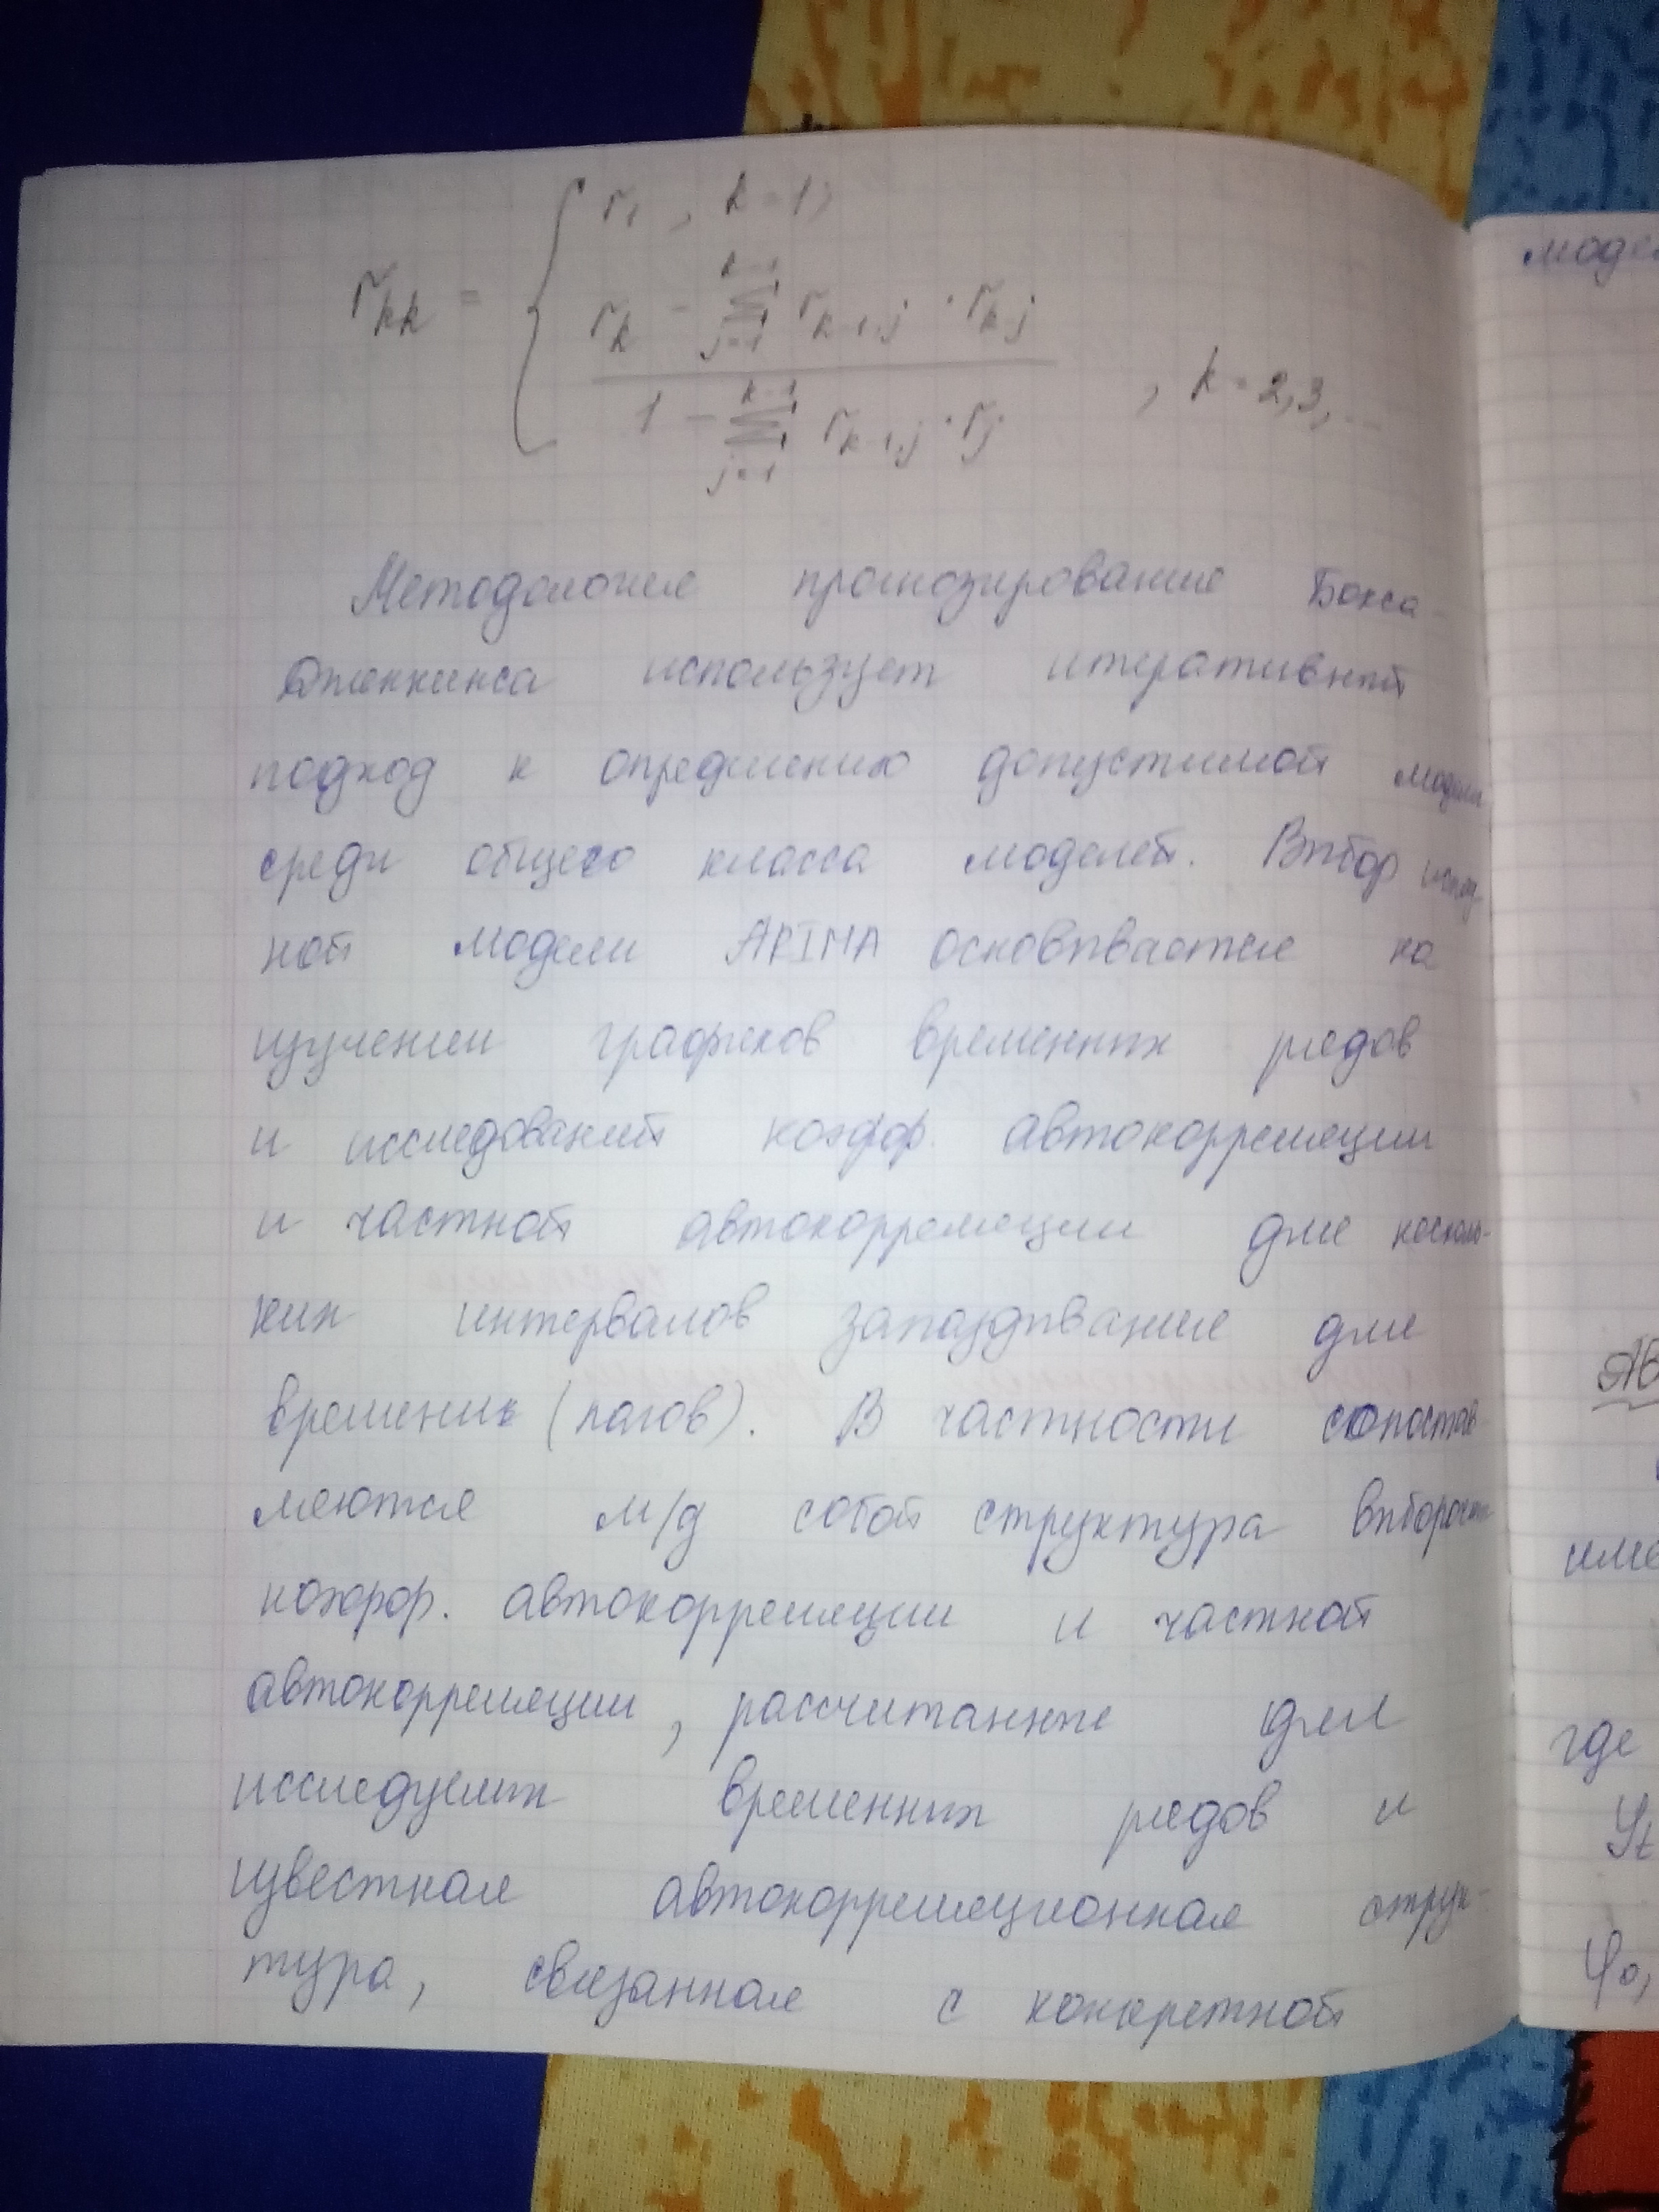 r₁ , k=1;
r_kk = { (r_k - Σ_{j=1}^{k-1} r_{k-1,j} · r_{k-j}) / (1 - Σ_{j=1}^{k-1} r_{k-1,j} · r_j) , k=2,3,...
Методология прогнозирования Бокса-
Дженкинса использует итеративный
подход к определению допустимой модели
среди общего класса моделей. Выбор
ной модели ARIMA основывается на
изучении графиков временных рядов
и исследований коэфф. автокорреляции
и частной автокорреляции для несколь-
ких интервалов запаздывания для
времени (лагов). В частности сопостав
ляются м/д собой структура выборочн
коэфф. автокорреляции и частной
автокорреляции, рассчитанные для
исследуемых временных рядов и
известная автокорреляционная струк-
тура, связанная с конкретной
моде
Ав
име
где
Yt
φ₀,